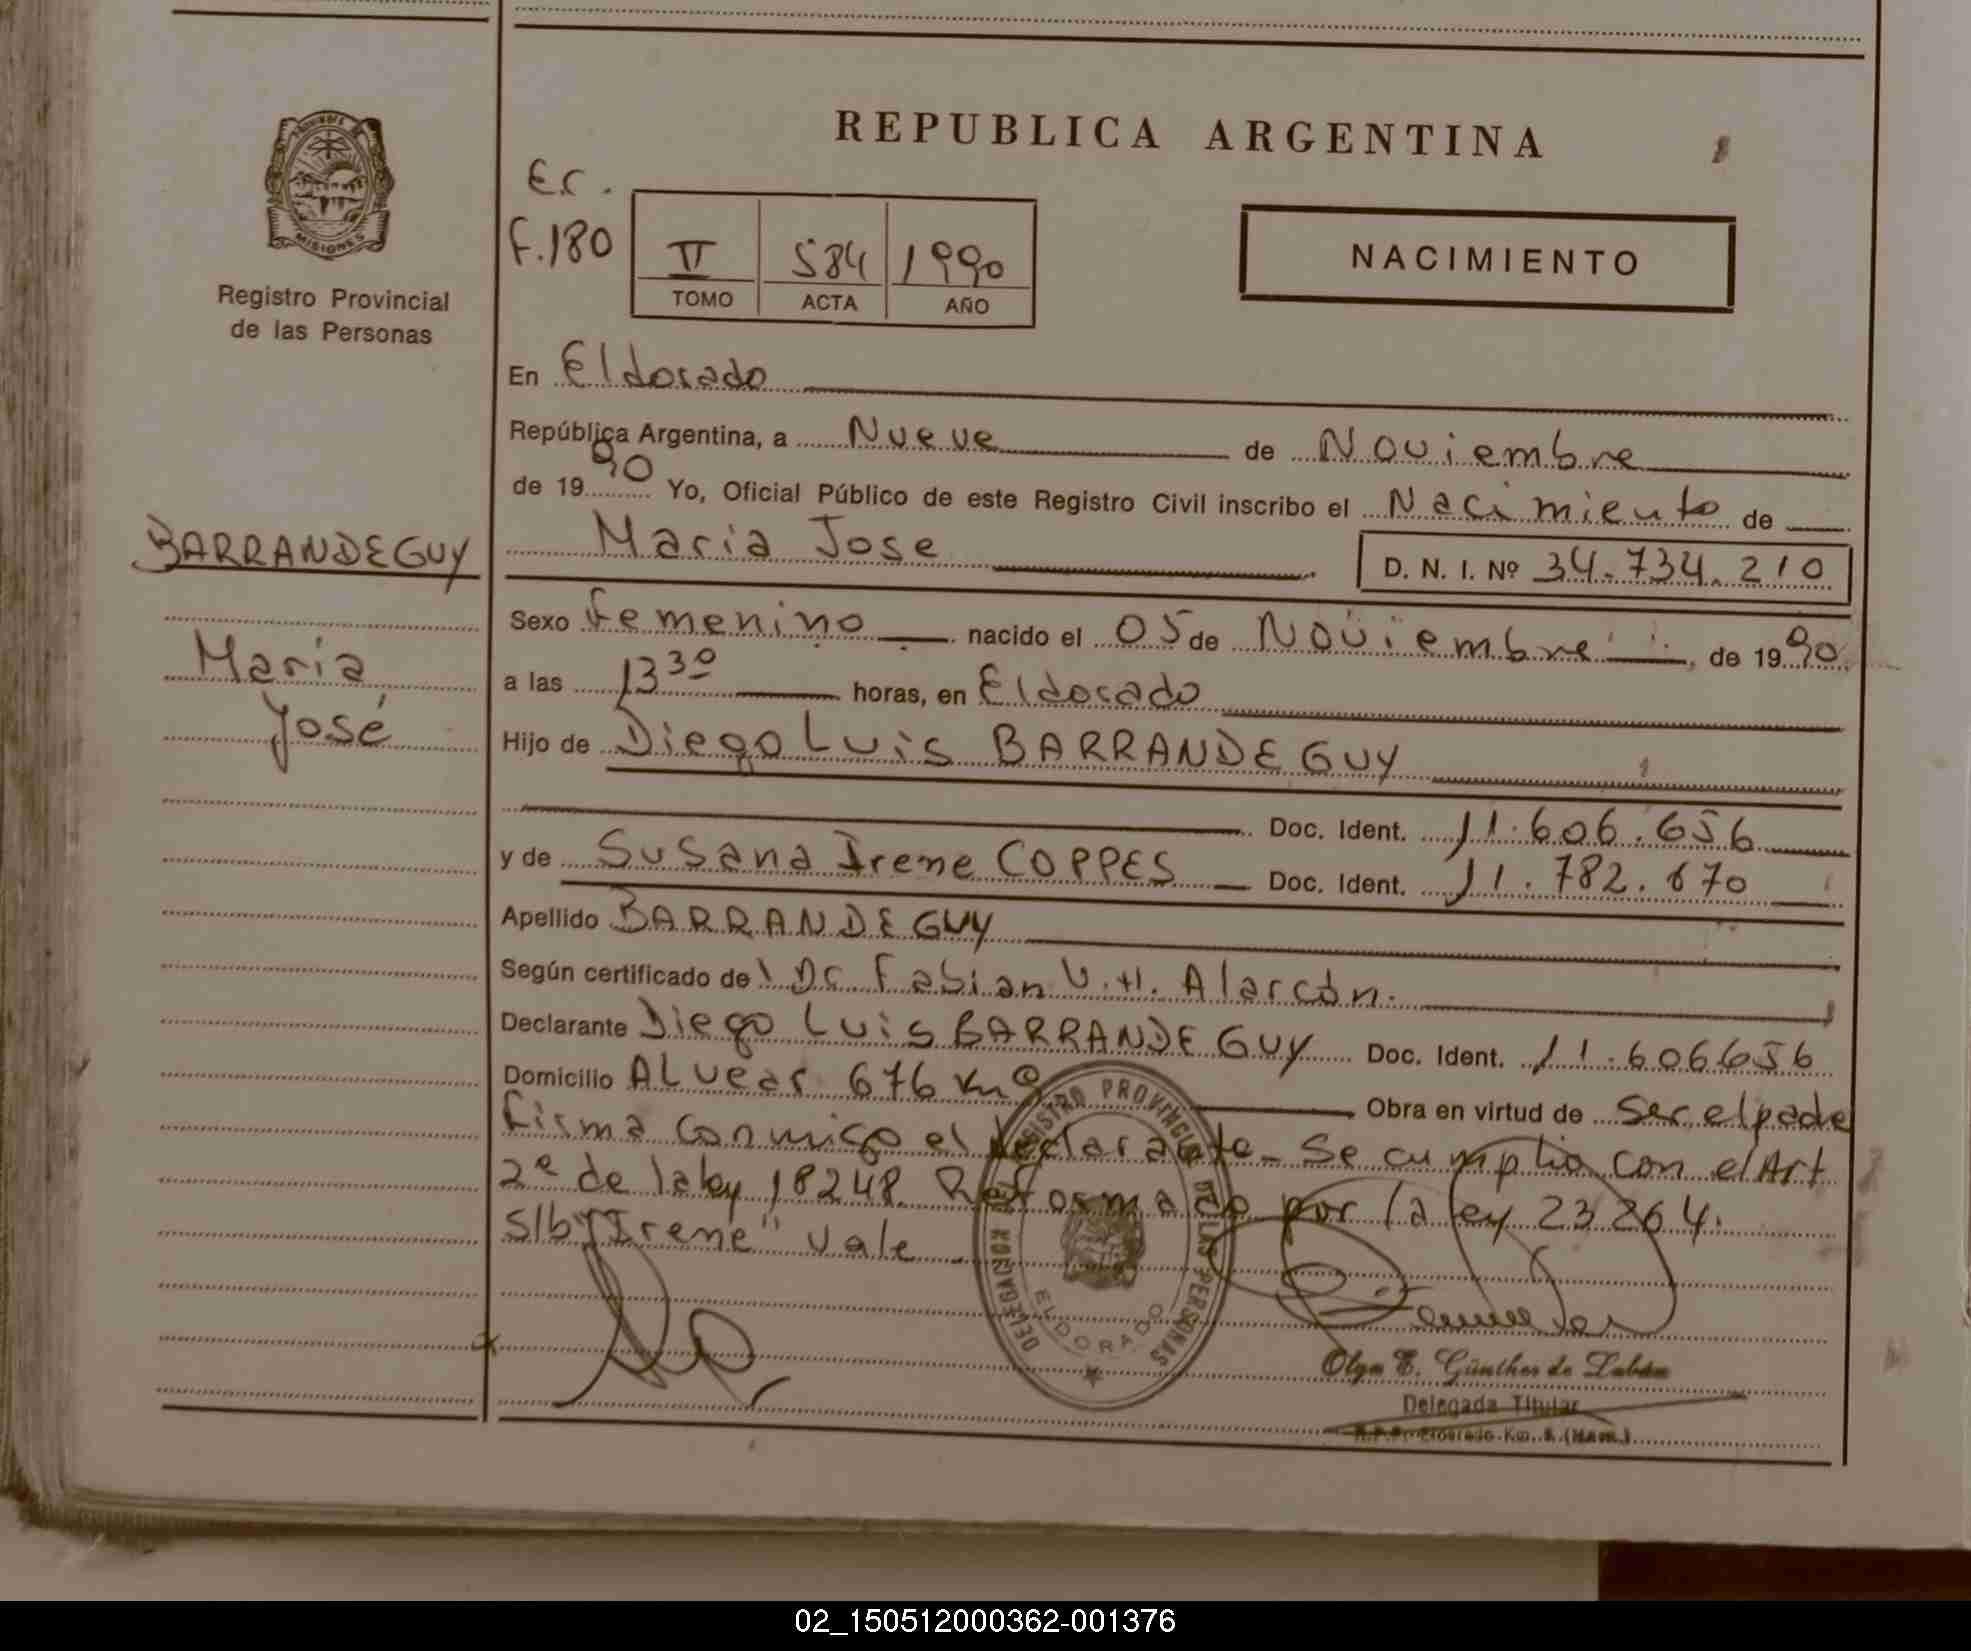 REPUBLICA ARGENTINA
PROVINCIA DE
MISIONES
Registro Provincial
de las Personas
E.C.
F.180
II 584 1990
TOMO ACTA AÑO
NACIMIENTO
En Eldorado
República Argentina, a Nueve de Noviembre
de 1990 Yo, Oficial Público de este Registro Civil inscribo el Nacimiento de
BARRANDEGUY
Maria Jose D. N. I. Nº 34.734.210
Sexo Femenino nacido el 05 de Noviembre de 1990
María
José
a las 13 30 horas, en Eldorado
Hijo de Diego Luis BARRANDEGUY
Doc. Ident. 11.606.656
y de Susana Irene COPPES Doc. Ident. 11.782.670
Apellido BARRANDEGUY
Según certificado de Dr Fabian V.H. Alarcón.
Declarante Diego Luis BARRANDEGUY Doc. Ident. 11.606656
Domicilio ALvear 676 Km 9 Obra en virtud de Ser el padre
firma conmigo el declarante - Se cumplio con el Art
2º de la ley 18248 Reformado por la ley 23264.
S/b "Irene" vale
REGISTRO PROVINCIAL DE LAS PERSONAS
DELEGACION
ELDORADO
Olga E. Günther de Labán
Delegada Titular
R.P.P. Eldorado Km.
02_150512000362-001376